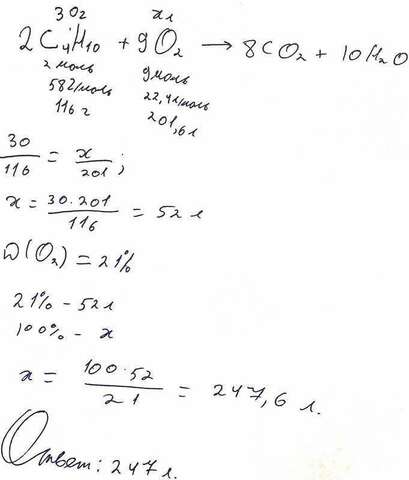 30г xл
2C4H10 + 9O2 → 8CO2 + 10H2O
2 моль 9 моль
58г/моль 22,4л/моль
116 г 201,6 л
30/116 = x/201 ;
x = 30·201/116 = 52 л
W(O2) = 21%
21% - 52 л
100% - x
x = 100·52/21 = 247,6 л.
Ответ: 247 л.